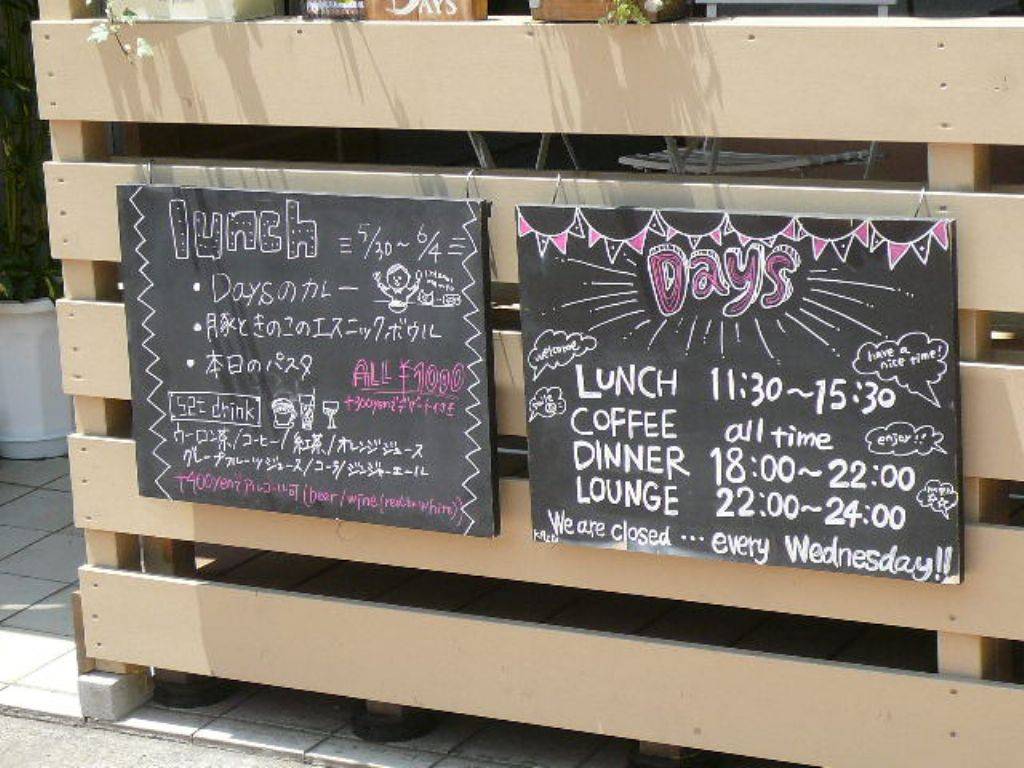 DAYS
lunch
5/30～6/4
・Daysのカレー
・豚ときのこのエスニックボウル
・本日のパスタ
ALL ¥1000
+300yenでデザート付き
set drink
ウーロン茶/コーヒー/紅茶/オレンジジュース
グレープフルーツジュース/コーラ/ジンジャーエール
+400yenでアルコール可(beer/wine(red or white))
Days
welcome
have a nice time!
LUNCH 11:30～15:30
COFFEE all time
enjoy!!
DINNER 18:00～22:00
LOUNGE 22:00～24:00
We are closed … every Wednesday!!